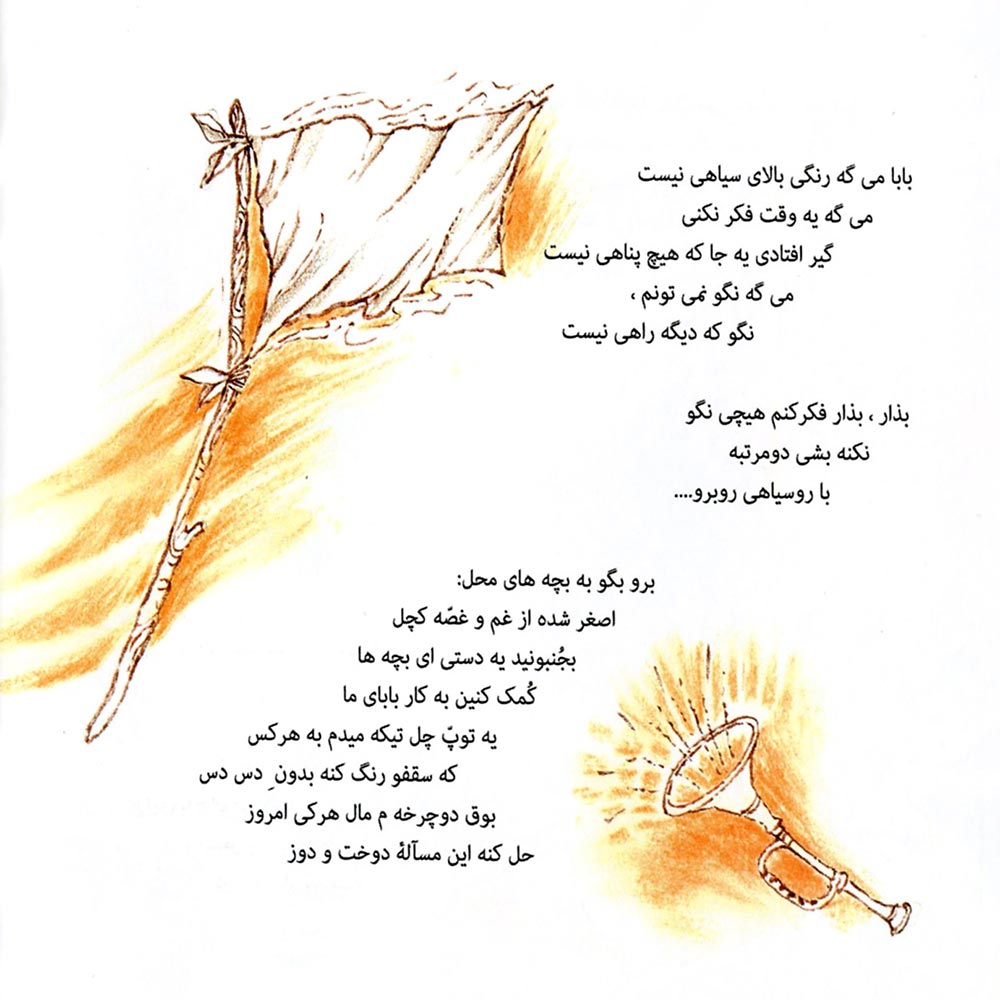 بابا می گه رنگی بالای سیاهی نیست
می گه یه وقت فکر نکنی
گیر افتادی یه جا که هیچ پناهی نیست
می گه نگو نمی تونم ،
نگو که دیگه راهی نیست
بذار ، بذار فکرکنم هیچی نگو
نکنه بشی دومرتبه
با روسیاهی روبرو....
برو بگو به بچه های محل:
اصغر شده از غم و غصّه کچل
بجُنبونید یه دستی ای بچه ها
کُمک کنین به کار بابای ما
یه توپّ چل تیکه میدم به هرکس
که سقفو رنگ کنه بدونِ دس دس
بوق دوچرخه م مال هرکی امروز
حل کنه این مسآلهٔ دوخت و دوز